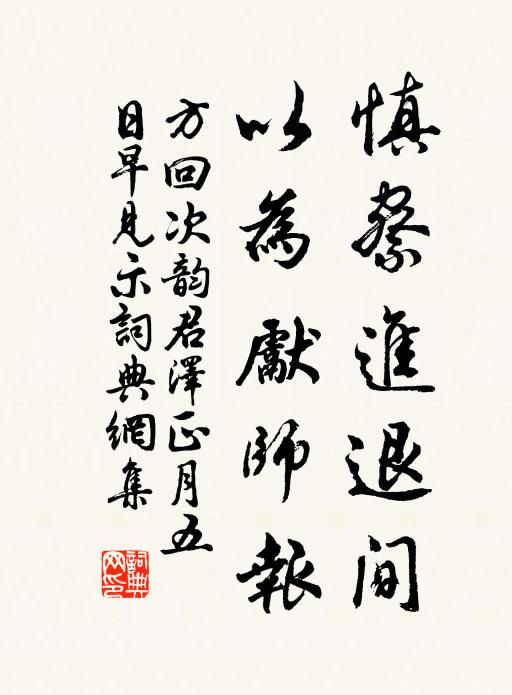 慎察進退間
以為獻師報
方回次韵君澤正月五
日早見示詞典網集
詞典
网印